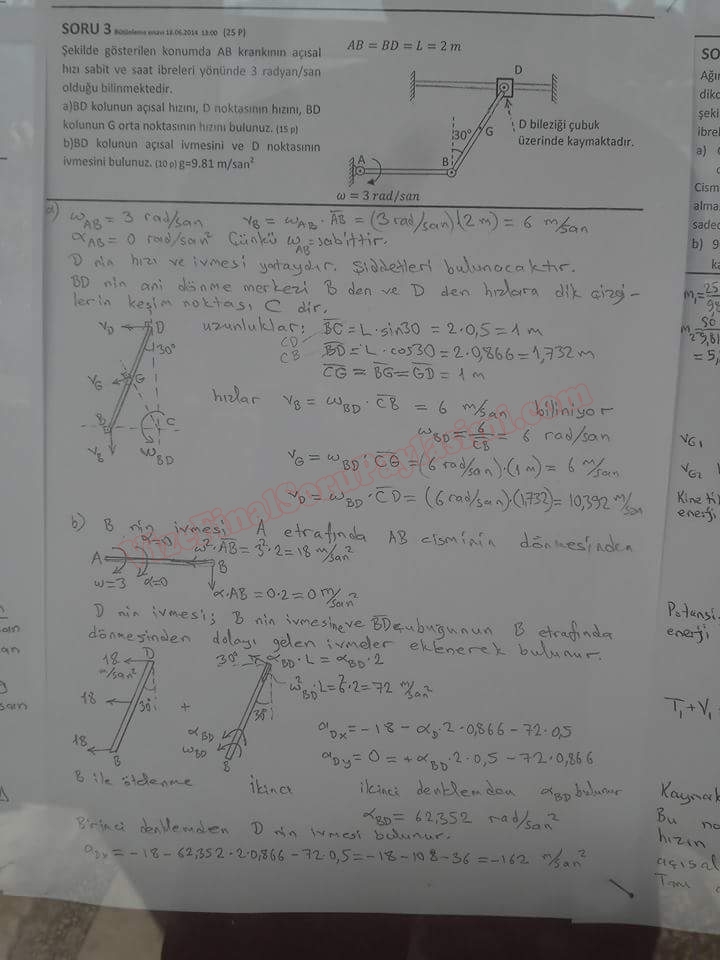 SORU 3 Bütünleme sınavı 18.06.2014 13:00 (25 P)
Şekilde gösterilen konumda AB krankının açısal
hızı sabit ve saat ibreleri yönünde 3 radyan/san
olduğu bilinmektedir.
a)BD kolunun açısal hızını, D noktasının hızını, BD
kolunun G orta noktasının hızını bulunuz. (15 p)
b)BD kolunun açısal ivmesini ve D noktasının
ivmesini bulunuz. (10 p) g=9.81 m/san²
AB = BD = L = 2 m
D
30°
G
A
B
D bileziği çubuk
üzerinde kaymaktadır.
ω = 3 rad/san
a) ω_AB = 3 rad/san   v_B = ω_AB · AB = (3 rad/san)(2 m) = 6 m/san
α_AB = 0 rad/san² Çünkü ω_AB = sabittir.
D nin hızı ve ivmesi yataydır. Şiddetleri bulunacaktır.
BD nin ani dönme merkezi B den ve D den hızlara dik çizgi-
lerin kesim noktası C dir.
v_D
D
30°
v_G
G
B
C
v_B
ω_BD
uzunluklar: BC = L · sin30 = 2 · 0,5 = 1 m
CD
CB
BD = L · cos30 = 2 · 0,866 = 1,732 m
CG = BG = GD = 1 m
hızlar v_B = ω_BD · CB = 6 m/san biliniyor
ω_BD = 6/CB = 6 rad/san
v_G = ω_BD · CG = (6 rad/san) · (1 m) = 6 m/san
v_D = ω_BD · CD = (6 rad/san) · (1,732) = 10,392 m/san
VizeFinalSoruPaylasimi.com
b) B nin ivmesi A etrafında AB cisminin dönmesinden
α=0
A
ω² · AB = 3² · 2 = 18 m/san²
B
ω=3
α=0
α · AB = 0 · 2 = 0 m/san²
D nin ivmesi; B nin ivmesine ve BD çubuğunun B etrafında
dönmesinden dolayı gelen ivmeler eklenerek bulunur.
18
m/san²
D
18
30°
18
B
+
30°
α_BD · L = α_BD · 2
ω²_BD · L = 6² · 2 = 72 m/san²
30°
α_BD
ω_BD
B
a_Dx = -18 - α_D · 2 · 0,866 - 72 · 0,5
a_Dy = 0 = + α_BD · 2 · 0,5 - 72 · 0,866
B ile ötelenme
İkinci
ikinci denklemden α_BD bulunur
α_BD = 62,352 rad/san²
Birinci denklemden D nin ivmesi bulunur.
a_Dx = -18 - 62,352 · 2 · 0,866 - 72 · 0,5 = -18 - 108 - 36 = -162 m/san²
SO
Ağır
diko
şeki
ibrel
a)
Cism
alma
sadec
b) 9
ka
v_G1
v_G2
Kinetik
enerji
Potansi
enerji
T₁+V₁
Kaynak
Bu no
hızın
açısal
Tam